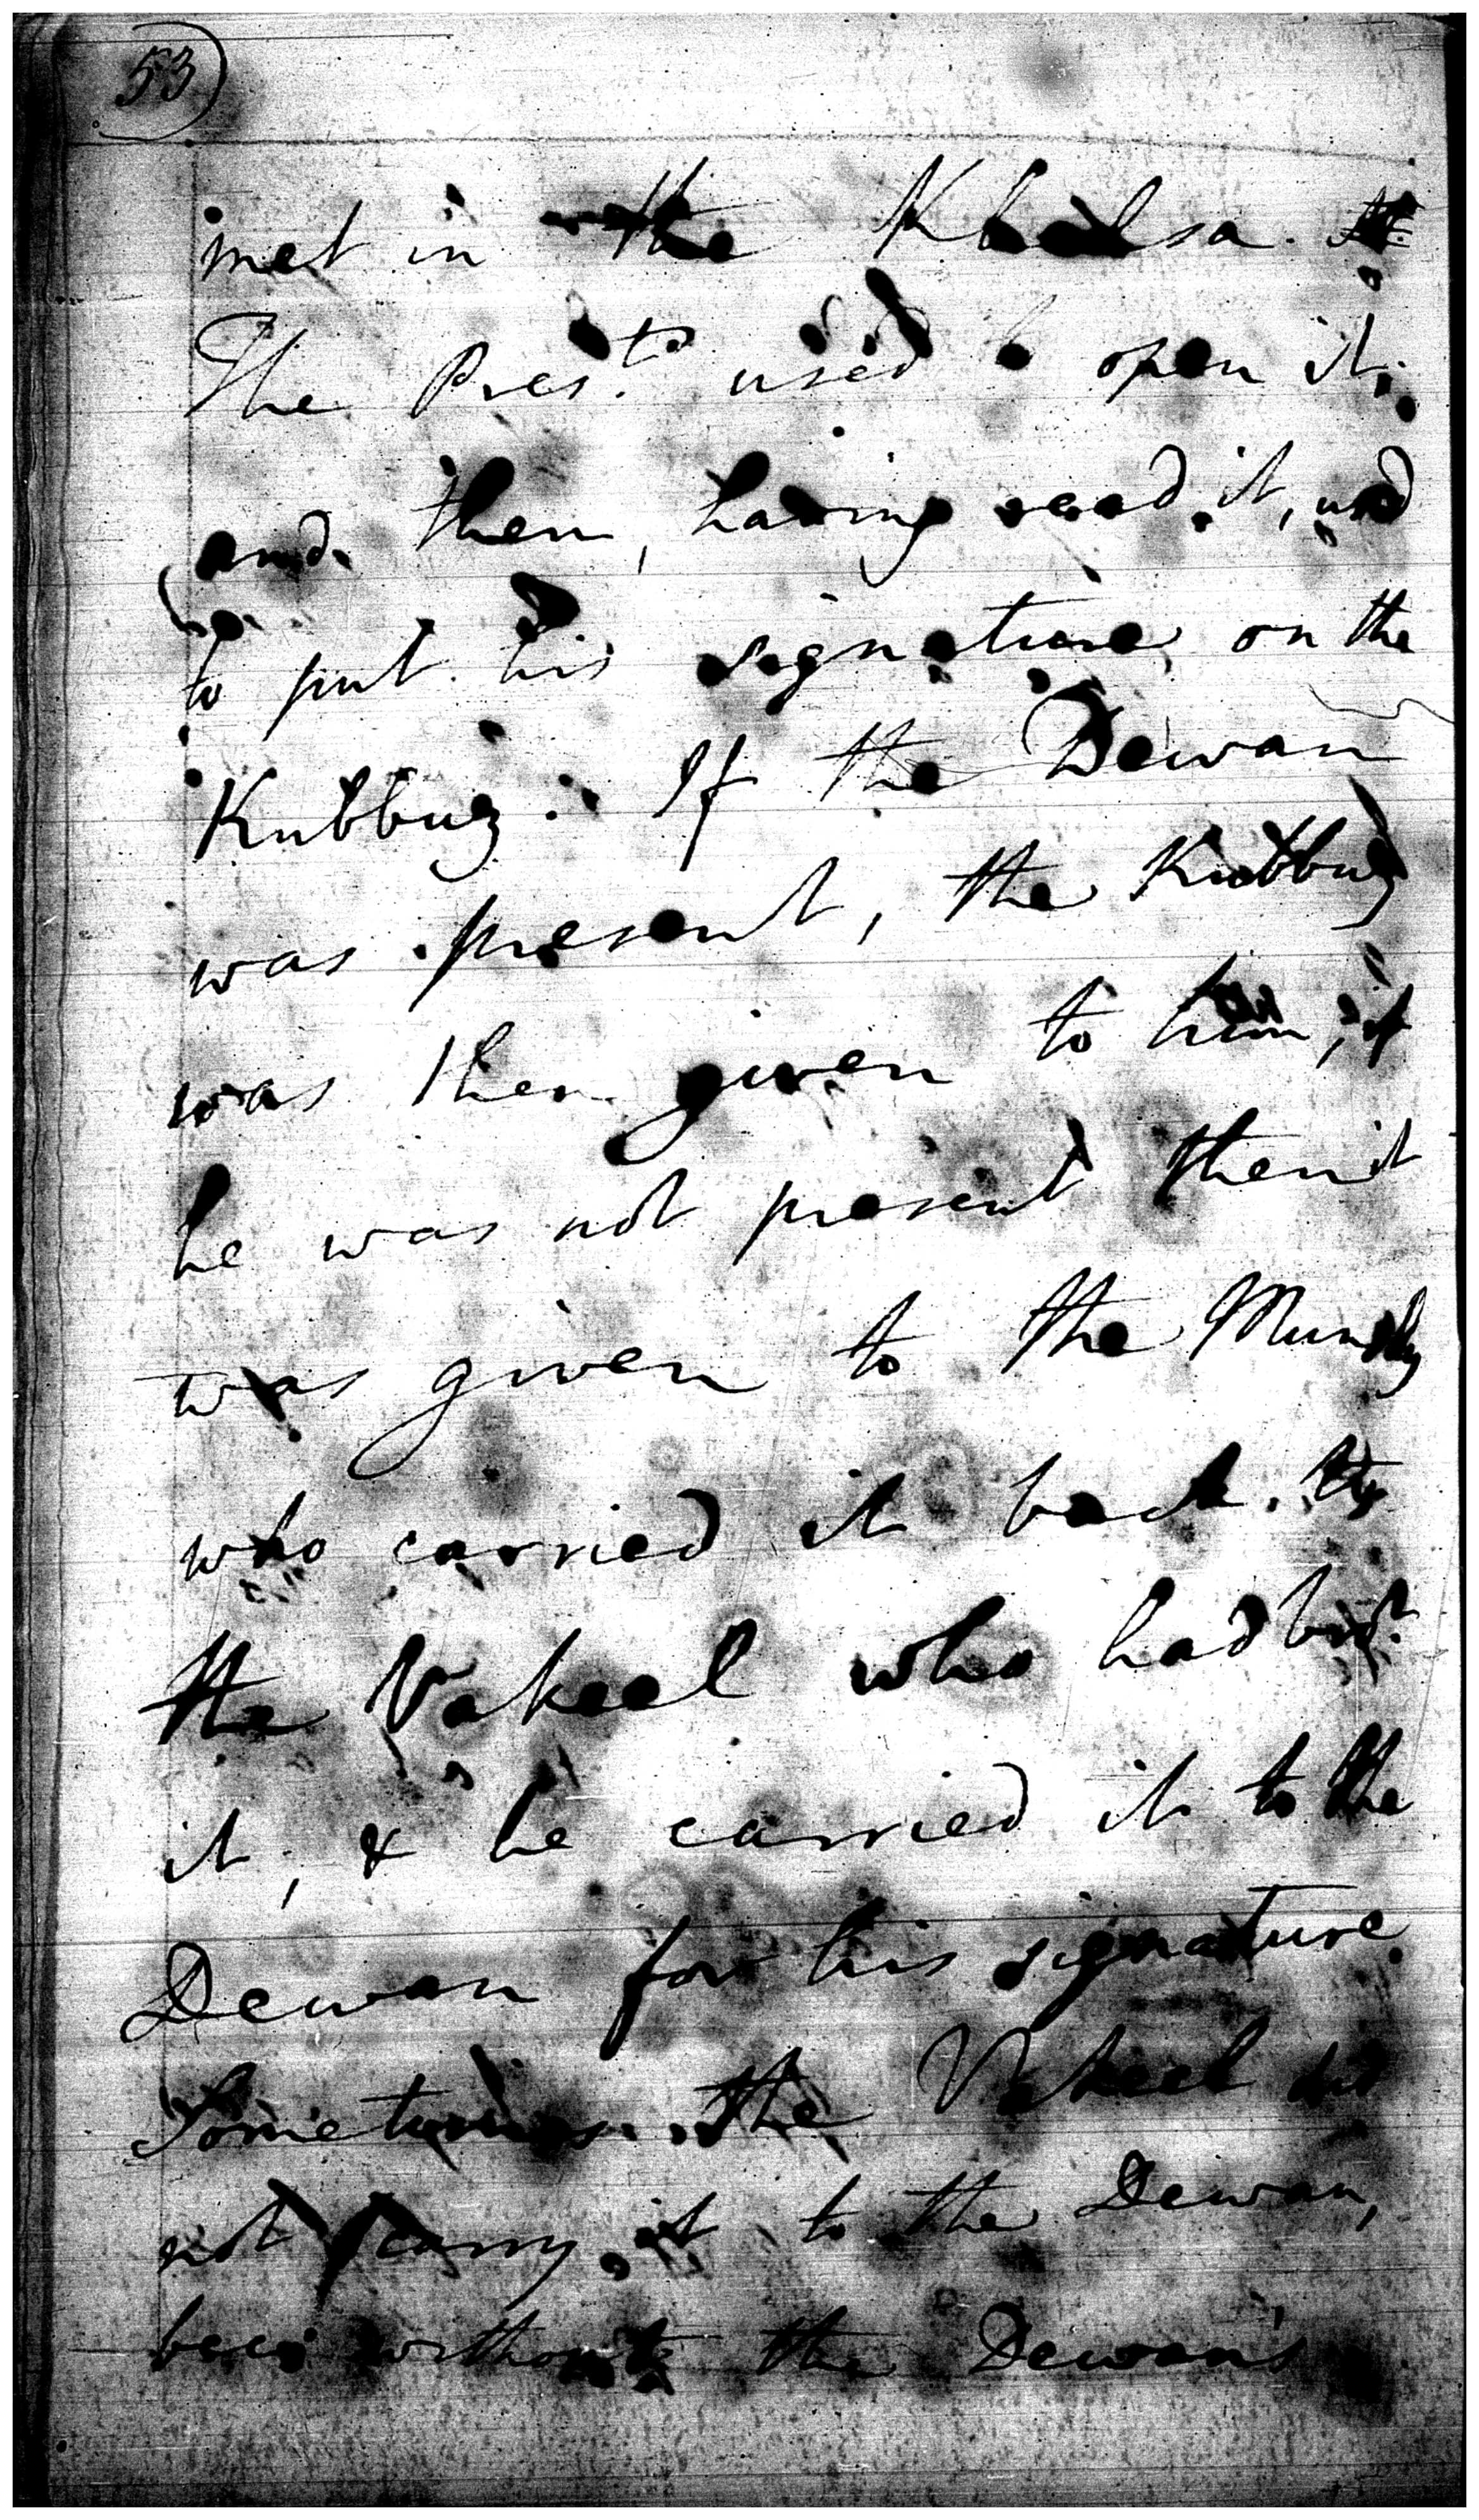 53
met in the Khalsa.
The Pres.t used to open it,
and then, having read it, used
to put his signature on the
Kubbuz. If the Dewan
was present, the Kubbuz
was then given to him, if
he was not present then it
was given to the Munshy
who carried it back. to
the Vakeel who had
it, & he carried it to the
Dewan for his signature.
Sometimes the Vakeel did
not carry it to the Dewan,
without the Dewan's